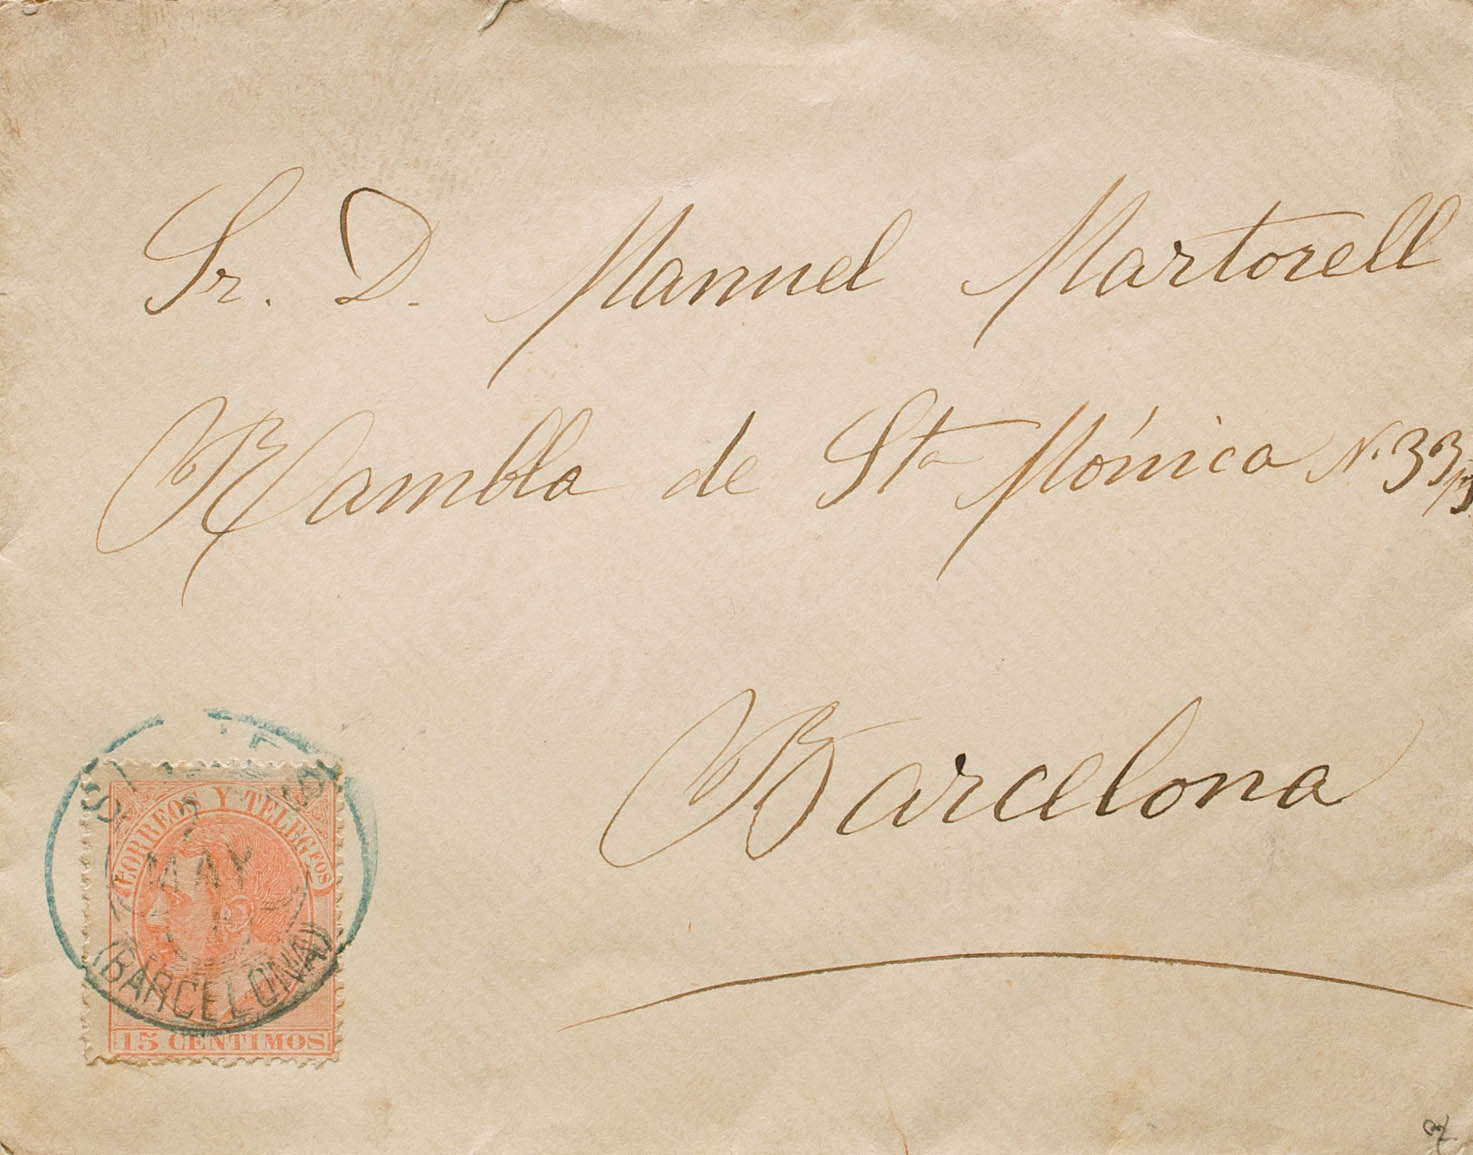 Sr. D. Manuel Martorell
Rambla de Sta Mónica N. 33
Barcelona
CORREOS Y TELEGFOS
MAY
(BARCELONA)
15 CENTIMOS